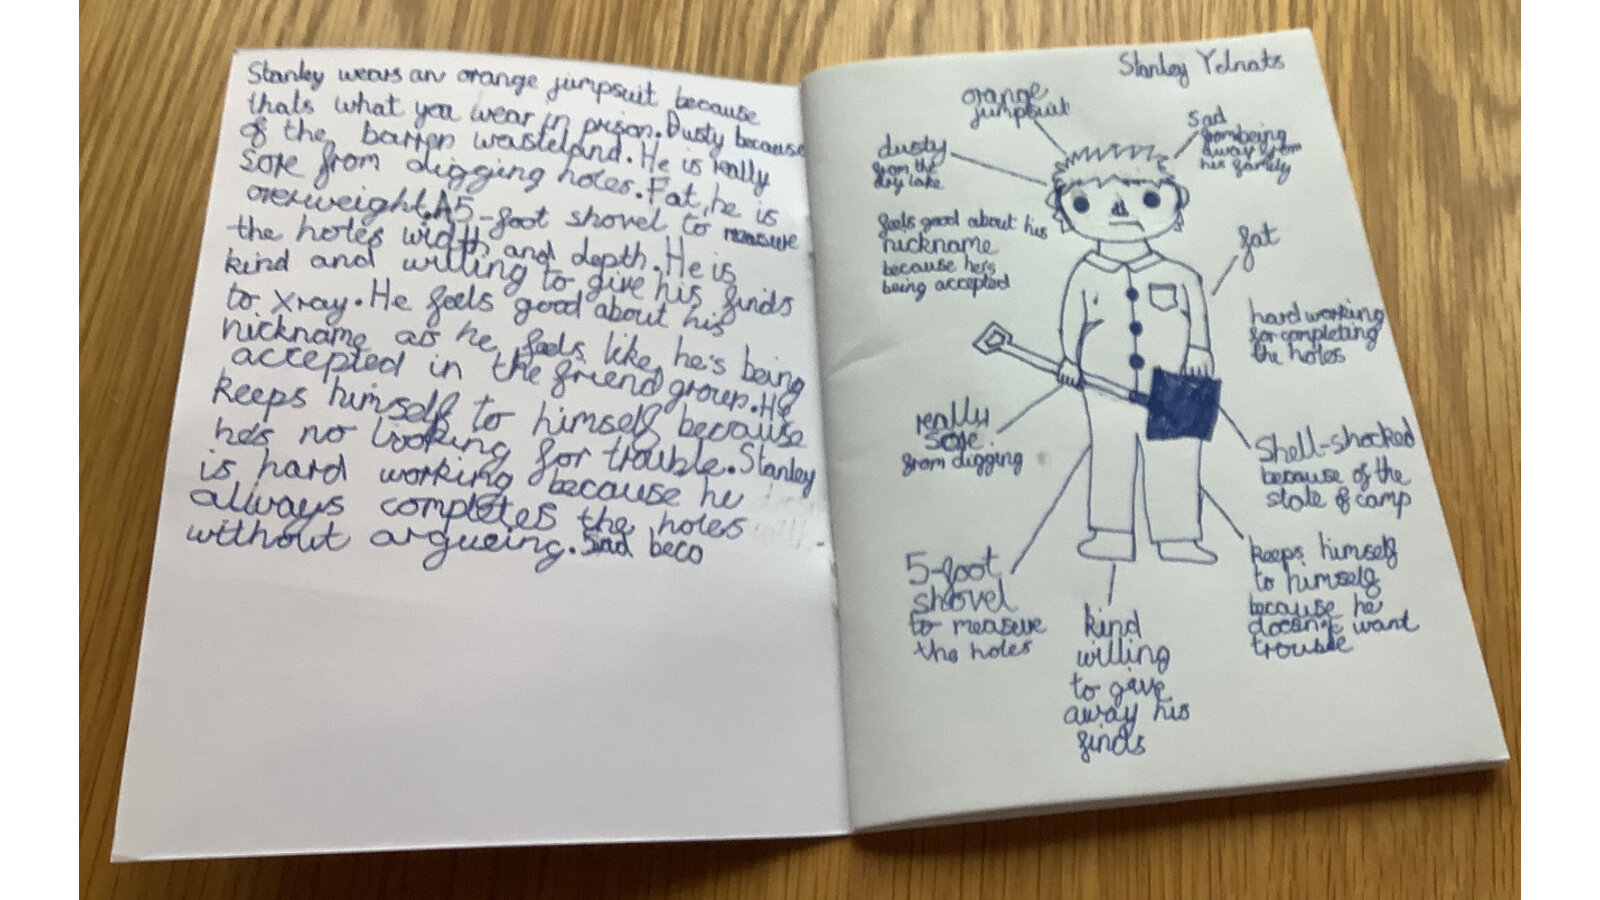 Stanley wears an orange jumpsuit because
thats what you wear in prison. Dusty because
of the barren wasteland. He is really
sore from digging holes. Fat, he is
overweight. A 5-foot shovel to measure
the holes width and depth. He is
kind and willing to give his finds
to Xray. He feels good about his
nickname as he feels like he's being
accepted in the friend group. He
keeps himself to himself because
he's no looking for trouble. Stanley
is hard working because he
always completes the holes
without argueing. Sad beco
Stanley Yelnats
orange
jumpsuit
sad
from being
away from
his family
dusty
from the
dry lake
feels good about his
nickname
because he's
being accepted
fat
hard working
for completing
the holes
really
sore
from digging
Shell-shocked
because of the
state of camp
5-foot
shovel
to measure
the holes
kind
willing
to gave
away his
finds
keeps himself
to himself
because he
doesn't want
trouble